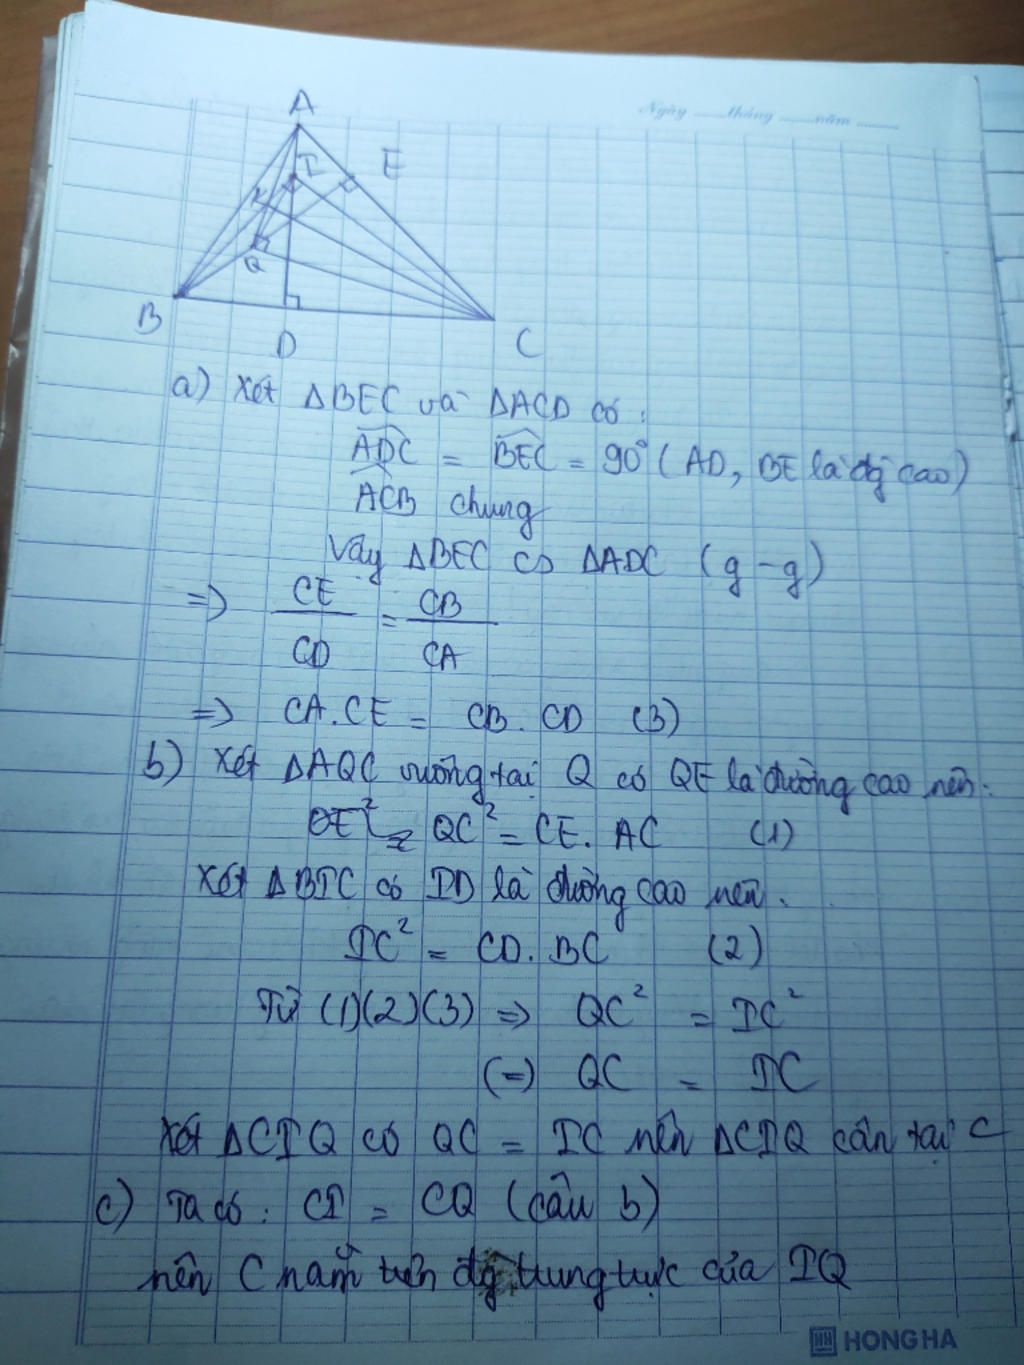 Ngày ........ tháng ........ năm ........
A
I
E
K
Q
B
D
C
a) Xét ΔBEC và ΔACD có:
ADC = BEC = 90° (AD, BE là đg cao)
ACB chung
Vậy ΔBEC ∽ ΔADC (g-g)
=> CE/CD = CB/CA
=> CA.CE = CB.CD (3)
b) Xét ΔAQC vuông tại Q có QE là đường cao nên:
QC² = CE.AC (1)
Xét ΔBIC có ID là đường cao nên.
IC² = CD.BC (2)
Từ (1)(2)(3) => QC² = IC²
(=) QC = IC
Xét ΔCIQ có QC = IC nên ΔCIQ cân tại C
c) Ta có: CI = CQ (câu b)
nên C nằm trên đg trung trực của IQ
HH HONG HA